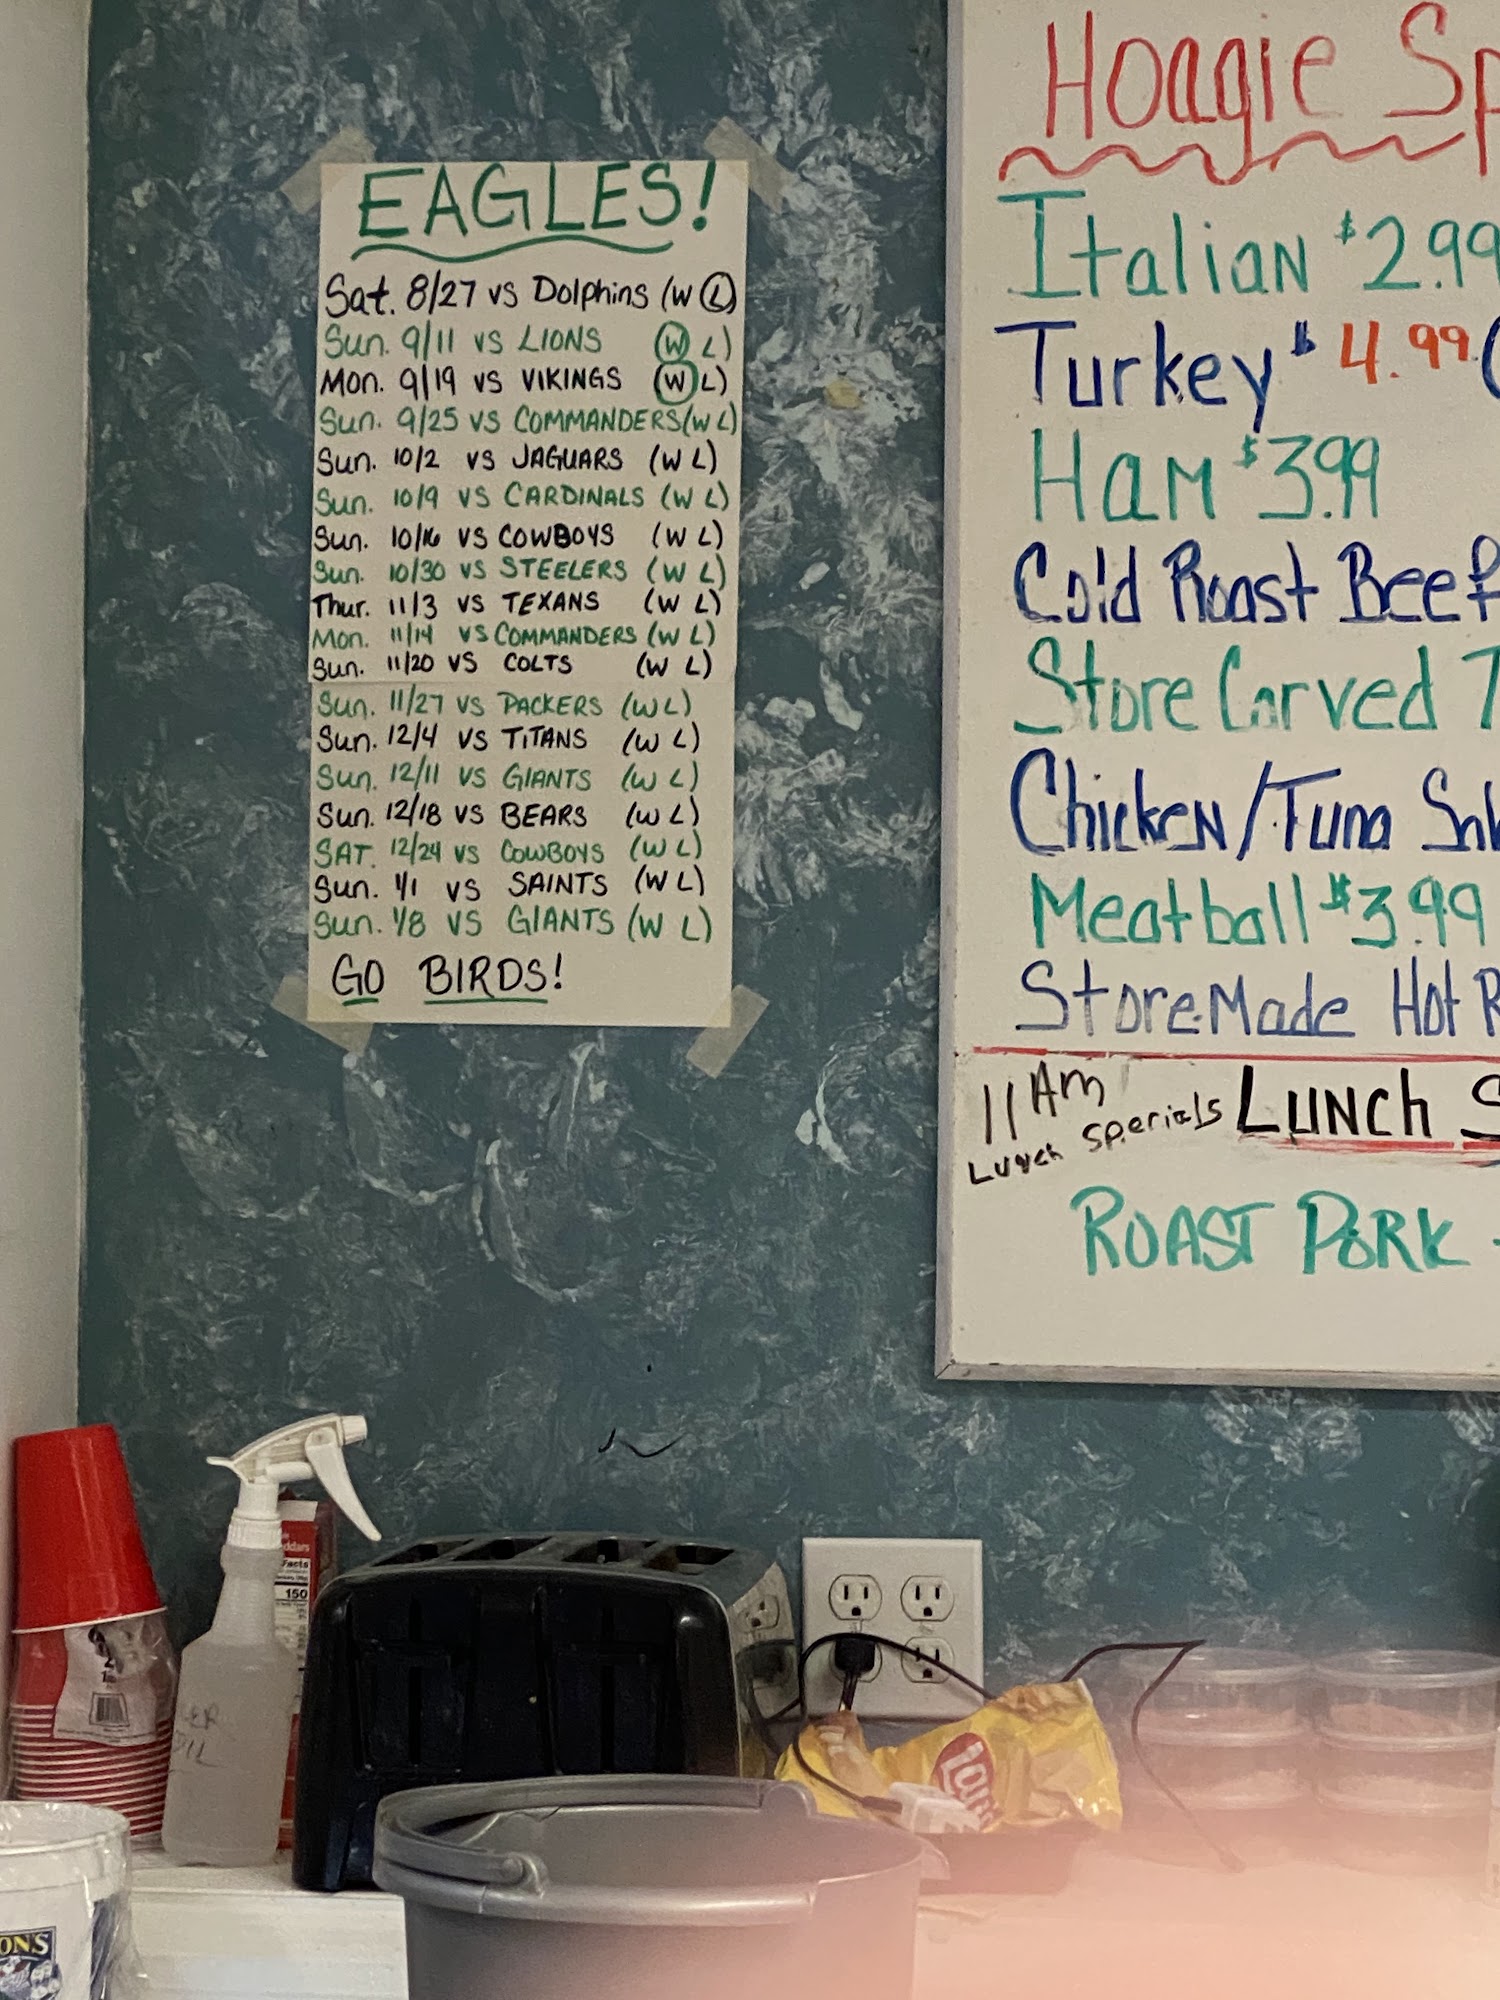 EAGLES!
Sat. 8/27 vs Dolphins (W L)
Sun. 9/11 vs LIONS (W L)
Mon. 9/19 vs VIKINGS (W L)
Sun. 9/25 vs COMMANDERS (W L)
Sun. 10/2 vs JAGUARS (W L)
Sun. 10/9 vs CARDINALS (W L)
Sun. 10/16 vs COWBOYS (W L)
Sun. 10/30 vs STEELERS (W L)
Thur. 11/3 vs TEXANS (W L)
Mon. 11/14 vs COMMANDERS (W L)
Sun. 11/20 VS COLTS (W L)
Sun. 11/27 VS PACKERS (W L)
Sun. 12/4 VS TITANS (W L)
Sun. 12/11 VS GIANTS (W L)
Sun. 12/18 VS BEARS (W L)
SAT. 12/24 VS COWBOYS (W L)
Sun. 1/1 VS SAINTS (W L)
Sun. 1/8 VS GIANTS (W L)
GO BIRDS!
Hoagie Sp
Italian $2.99
Turkey $4.99
Ham $3.99
Cold Roast Beef
Store Carved T
Chicken/Tuna Sal
Meatball $3.99
Store Made Hot R
11 AM
Lunch Specials
LUNCh S
ROAST PORK -
ddars
Facts
150
Lay's
ON'S